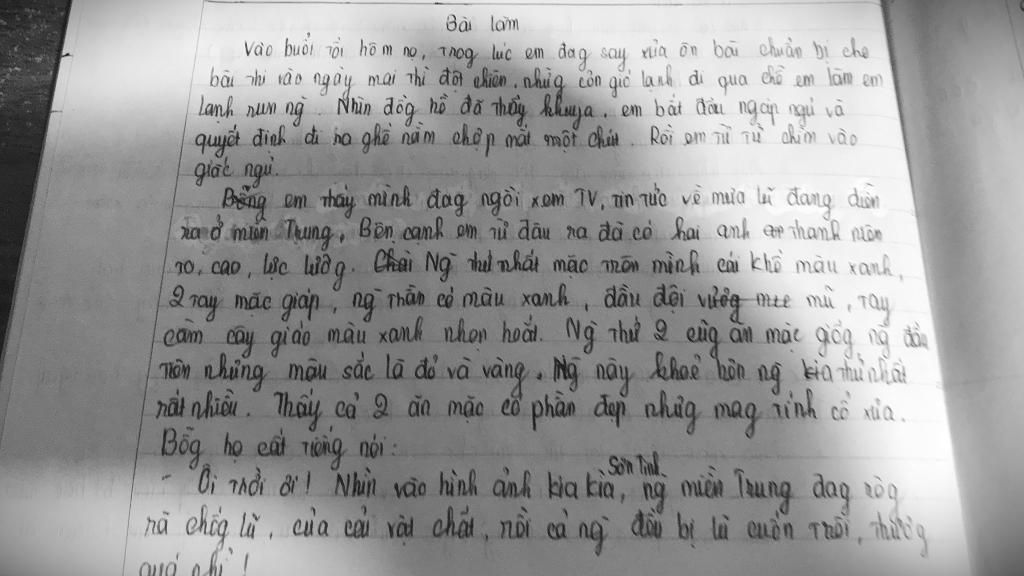 Bài làm
Vào buổi tối hôm nọ, trog lúc em đag say xưa ôn bài chuẩn bị cho
bài thi vào ngày mai thì đột nhiên, nhữg cơn gió lạnh đi qua chỗ em làm em
lạnh run ng. Nhìn đồg hồ đã thấy khuya, em bắt đầu ngáp ngủ và
quyết định đi ra ghế nằm chợp mắt một chút. Rồi em từ từ chìm vào
giấc ngủ.
Bỗng em thấy mình đag ngồi xem TV, tin tức về mưa lũ đang diễn
ra ở miền Trung, Bên cạnh em từ đâu ra đã có hai anh thanh niên
to, cao, lực lưỡg. Ng thứ nhất mặc trên mình cái khố màu xanh,
2 tay mặc giáp, ng thần có màu xanh, đầu đội mũ, tay
cầm cây giáo màu xanh nhọn hoắt. Ng thứ 2 cũg ăn mặc gốg ng đầu
nên nhưng màu sắc là đỏ và vàng. Ng này khoẻ hơn ng thứ nhất
rất nhiều. Thấy cả 2 ăn mặc có phần đẹp nhưg mag tính cổ xưa.
Bỗg họ cất tiếng nói:
- Ôi trời ơi! Nhìn vào hình ảnh kia kìa, Sơn Tinh, ng miền Trung đag ròg
rã chốg lũ, của cải vật chất, rồi cả ng đều bị lũ cuốn trôi, thươg
quá nhỉ!